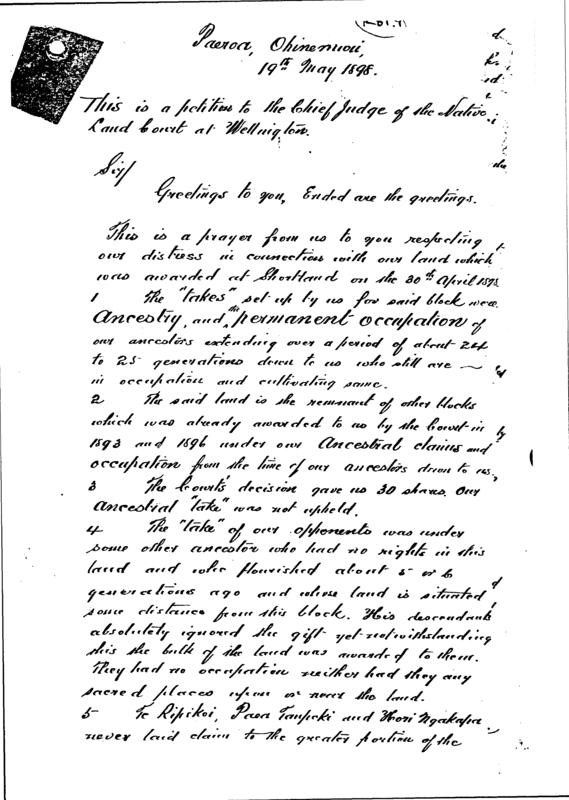 Paeroa, Ohinemuri,
19th May 1898.
This is a petition to the Chief Judge of the Native
Land Court at Wellington.
Sir/
Greetings to you, Ended are the greetings.
This is a prayer from us to you respecting
our distress in connection with our land which
was awarded at Shortland on the 30th April 1898.
1 The "takes" set up by us for said block were
Ancestry, and the permanent occupation of
our ancestors extending over a period of about 24
to 25 generations down to us who still are
in occupation and cultivating same.
2 The said land is the remnant of other blocks
which was already awarded to us by the Court in
1893 and 1896 under our Ancestral claims and
occupation from the time of our ancestors down to us.
3 The Court's decision gave us 30 shares. Our
Ancestral "take" was not upheld.
4 The "take" of our opponents was under
some other ancestor who had no rights in this
land and who flourished about 5 or 6
generations ago and whose land is situated
some distance from this block. His descendants
absolutely ignored the gift yet notwithstanding
this the bulk of the land was awarded to them.
They had no occupation neither had they any
sacred places upon or near the land.
5 Te Ripikoi, Paea Taupeki and Hori Ngakapa
never laid claim to the greater portion of the